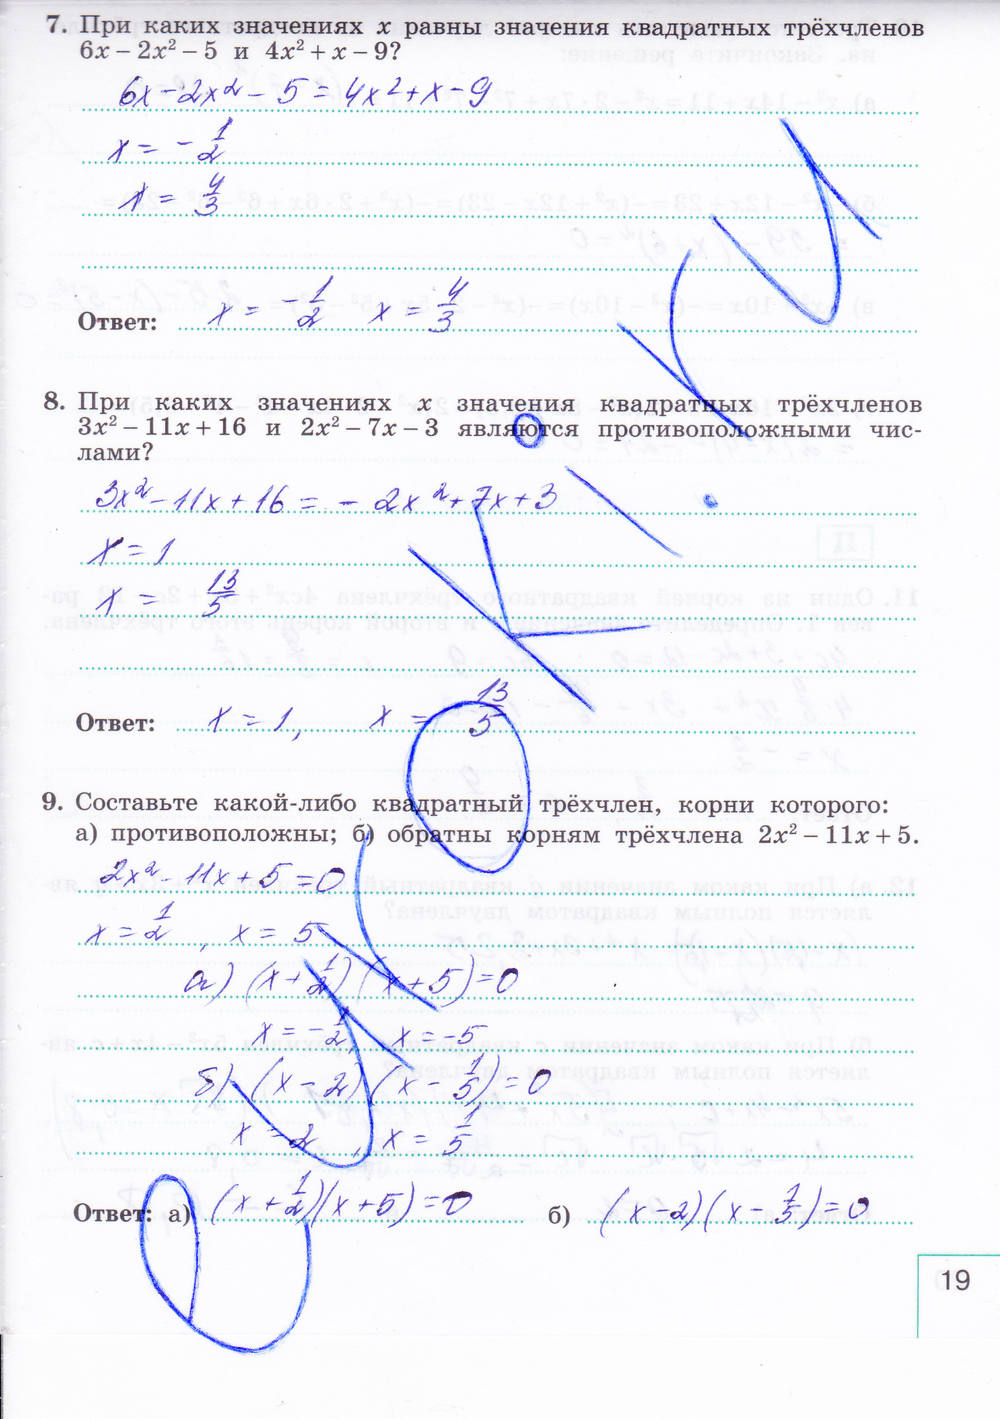 7. При каких значениях x равны значения квадратных трёхчленов
6x − 2x² − 5 и 4x² + x − 9?
6x − 2x² − 5 = 4x² + x − 9
x = − 1/2
x = 4/3
Ответ: x = − 1/2 x = 4/3
8. При каких значениях x значения квадратных трёхчленов
3x² − 11x + 16 и 2x² − 7x − 3 являются противоположными чис-
лами?
3x² − 11x + 16 = − 2x² + 7x + 3
x = 1
x = 13/5
Ответ: x = 1, x = 13/5
9. Составьте какой-либо квадратный трёхчлен, корни которого:
а) противоположны; б) обратны корням трёхчлена 2x² − 11x + 5.
2x² − 11x + 5 = 0
x = 1/2 , x = 5
а) (x + 1/2) (x + 5) = 0
x = − 1/2 x = −5
б) (x − 2) (x − 1/5) = 0
x = 2 , x = 1/5
Ответ: а) (x + 1/2)(x + 5) = 0 б) (x − 2)(x − 1/5) = 0
19